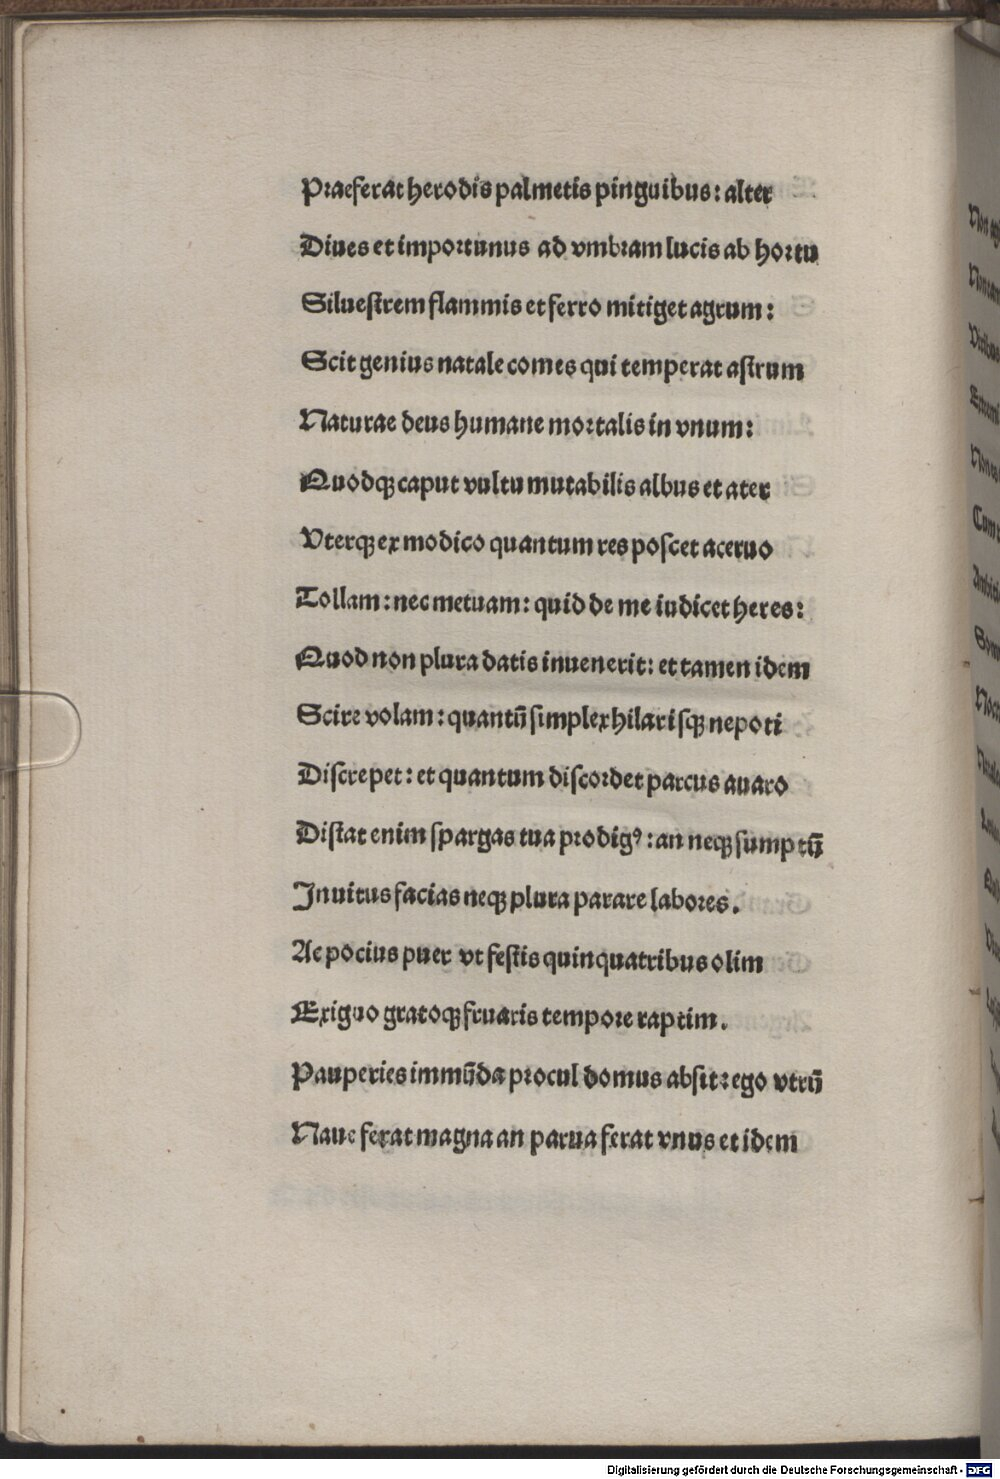 Praeferat herodis palmetis pinguibus: alter
Diues et importunus ad vmbram lucis ab hortu
Siluestrem flammis et ferro mitiget agrum:
Scit genius natale comes qui temperat astrum
Naturae deus humane mortalis in vnum:
Quodqꝫ caput vultu mutabilis albus et ater
Vterqꝫ ex modico quantum res poscet aceruo
Tollam: nec metuam: quid de me iudicet heres:
Quod non plura datis inuenerit: et tamen idem
Scire volam: quantū simplex hilarisqꝫ nepoti
Discrepet: et quantum discordet parcus auaro
Distat enim spargas tua prodigꝰ: an neqꝫ sumptū
Inuitus facias neqꝫ plura parare labores.
Ac pocius puer vt festis quinquatribus olim
Exiguo gratoqꝫ fruaris tempore raptim.
Pauperies immūda procul domus absit: ego vtrū
Naue ferat magna an parua ferat vnus et idem
Digitalisierung gefördert durch die Deutsche Forschungsgemeinschaft - DFG